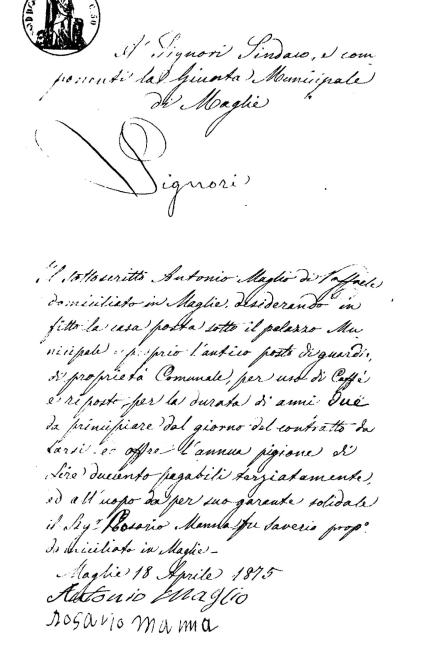 A' Signori Sindaco, e com
ponenti la Giunta Municipale
di Maglie
Signori
Il sottoscritto Antonio Maglio di Raffaele
domiciliato in Maglie, desiderando in
fitto la casa posta sotto il palazzo Mu
nicipale e proprio l'antico posto di guardia,
di proprietà Comunale, per uso di Caffé
e riposto, per la durata di anni due
da principiare dal giorno del contratto da
farsi, ed offre l'annua pigione di
Lire duecento pagabili terziatamente,
ed all'uopo da per suo garante solidale
il Sig.r Rosario Manna fu Saverio prop.o
domiciliato in Maglie_
Maglie 18 Aprile 1875
Antonio Maglio
rosario manna